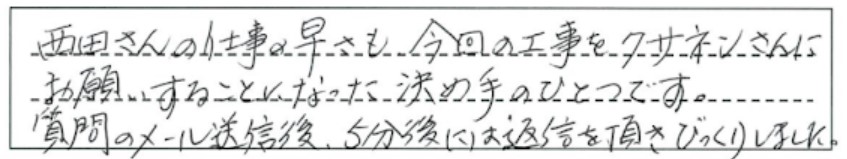 西田さんの仕事の早さも、今回の工事をクサネンさんに
お願いすることになった決め手のひとつです。
質問のメール送信後、5分後には返信を頂きびっくりしました。